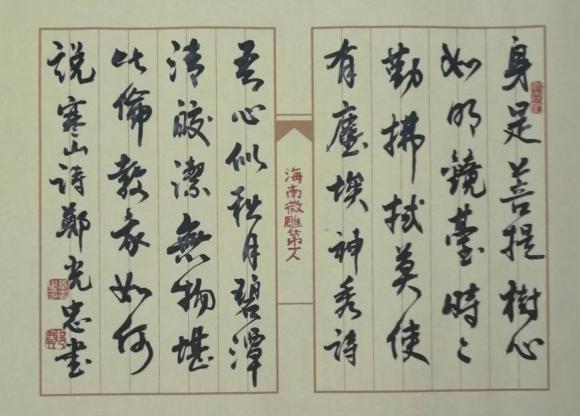 身是菩提樹心
如明鏡臺時〻
勤拂拭莫使
有塵埃神秀詩
海南微雕第一人
吾心似秋月碧潭
清皎潔無物堪
比倫教我如何
説寒山詩鄭光忠書